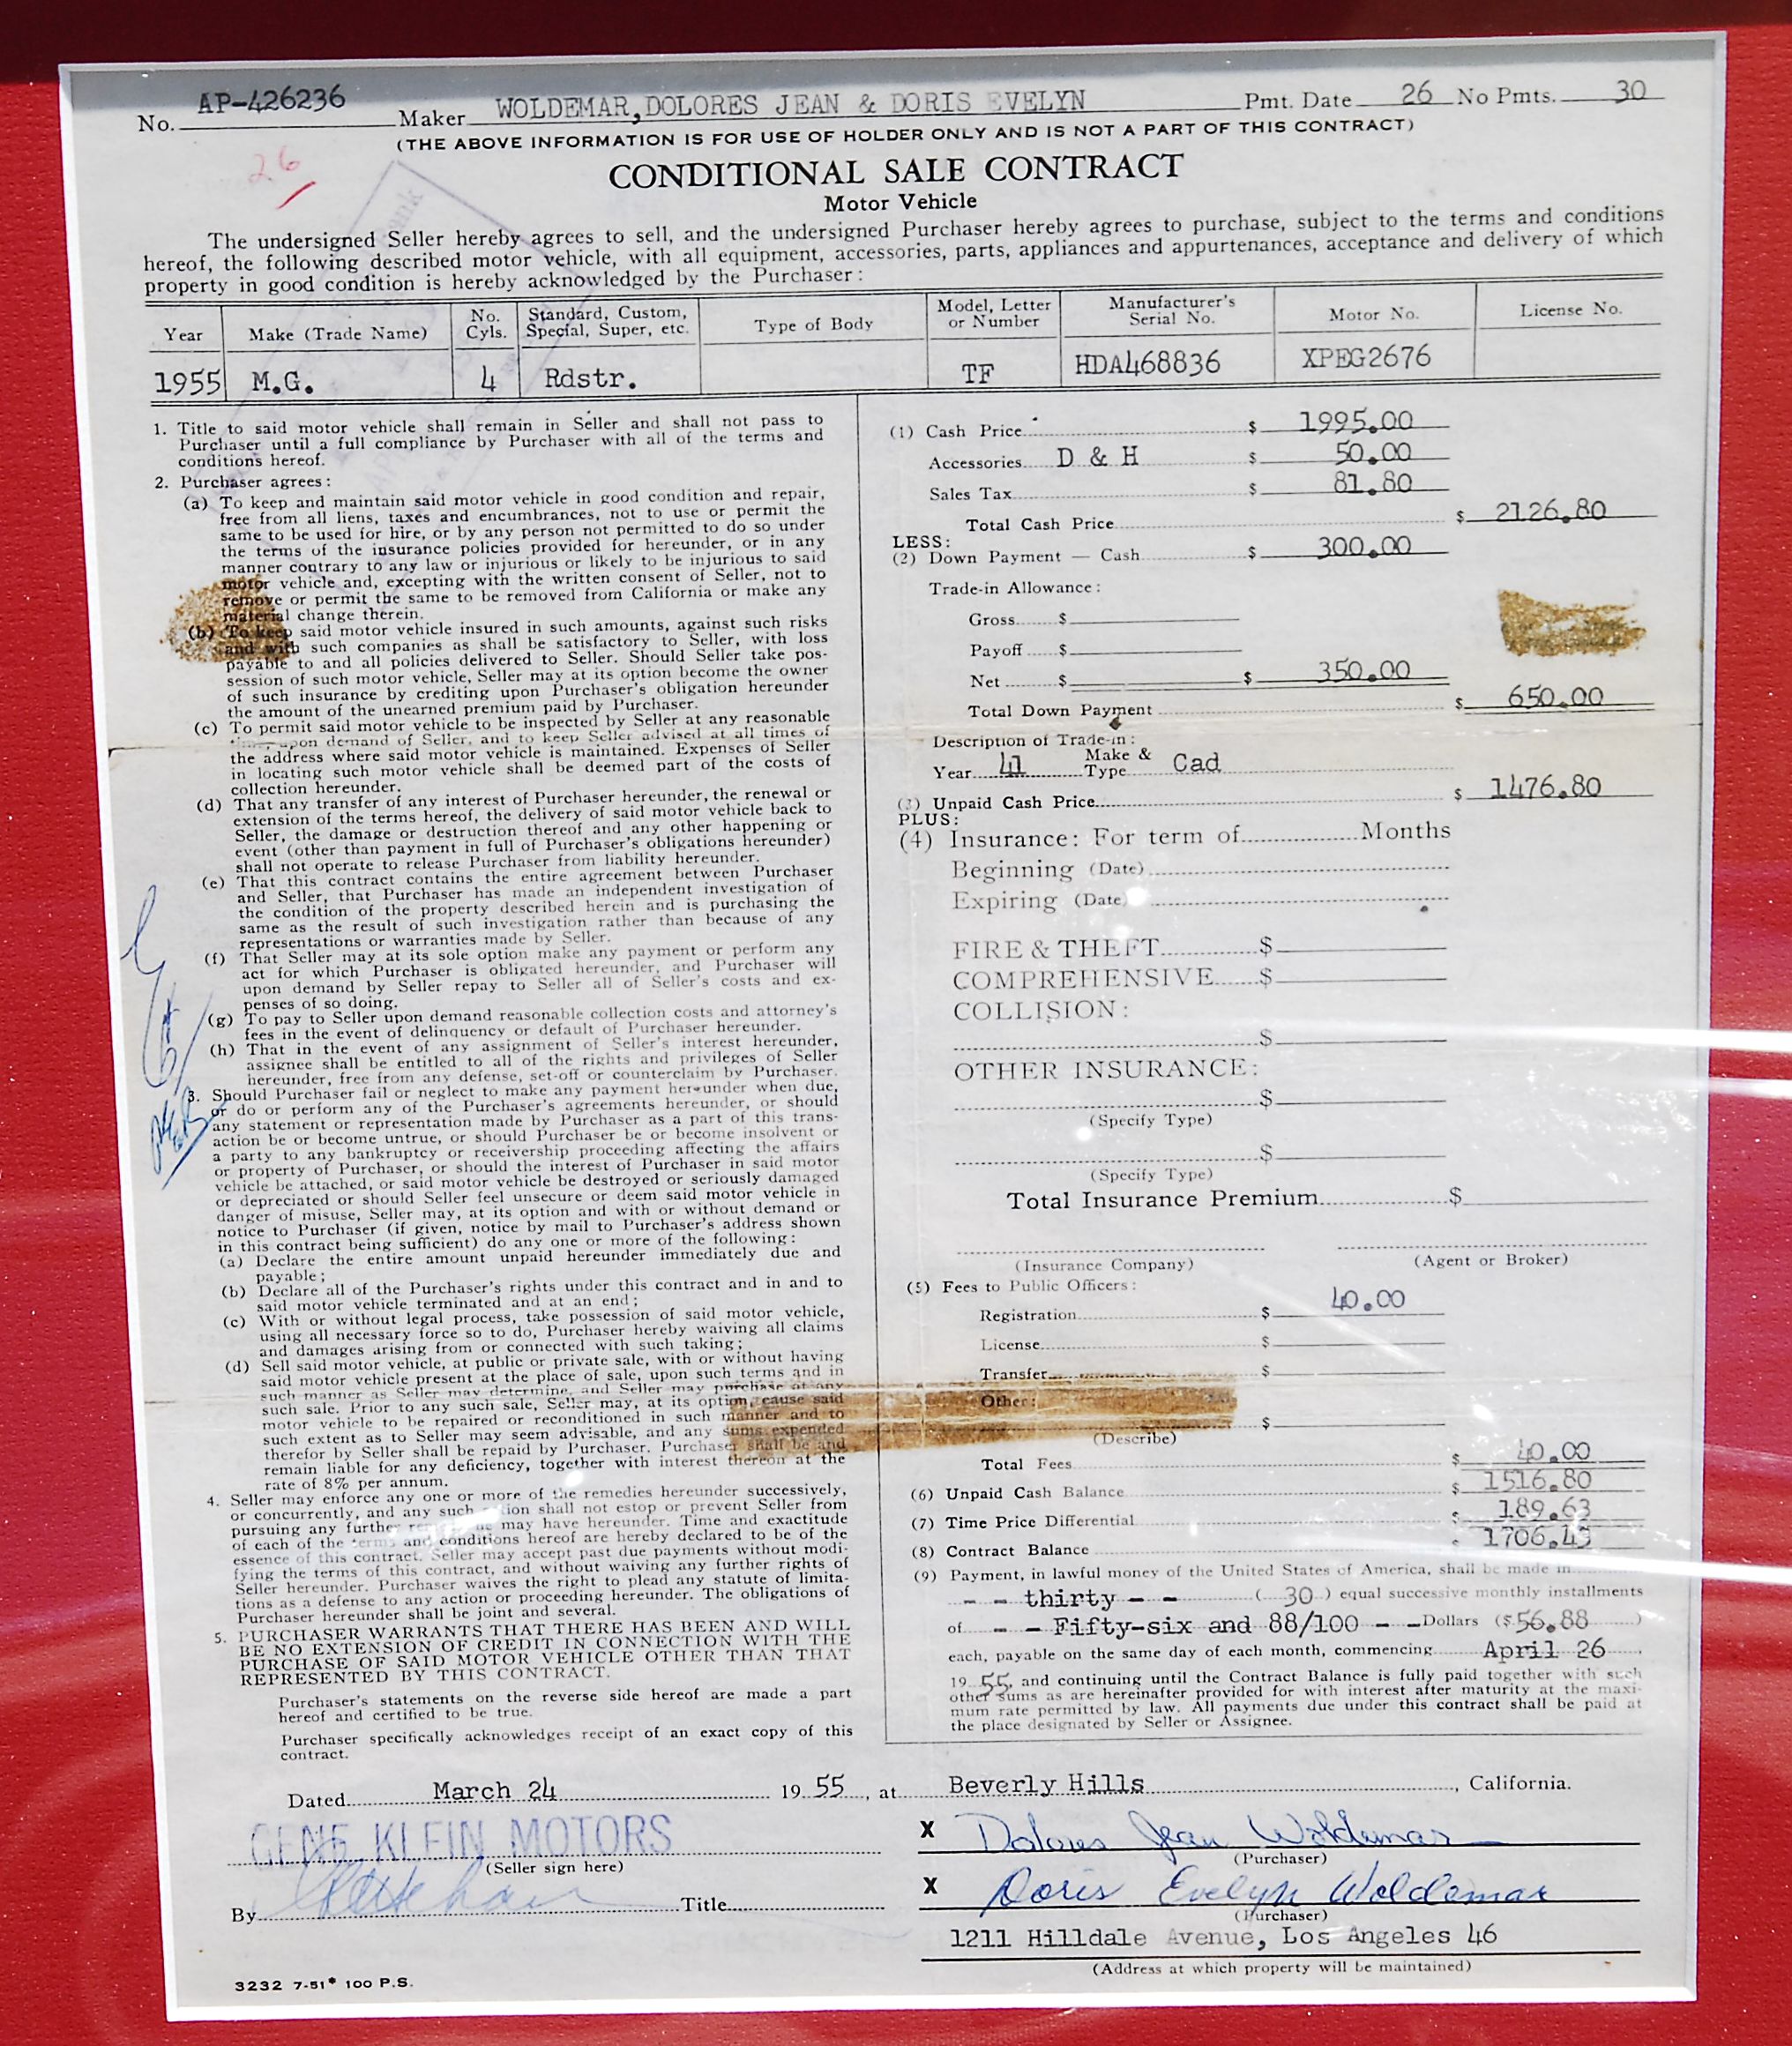 No. AP-426236 Maker WOLDEMAR,DOLORES JEAN & DORIS EVELYN Pmt. Date 26 No Pmts. 30
(THE ABOVE INFORMATION IS FOR USE OF HOLDER ONLY AND IS NOT A PART OF THIS CONTRACT)
26
CONDITIONAL SALE CONTRACT
Motor Vehicle
The undersigned Seller hereby agrees to sell, and the undersigned Purchaser hereby agrees to purchase, subject to the terms and conditions
hereof, the following described motor vehicle, with all equipment, accessories, parts, appliances and appurtenances, acceptance and delivery of which
property in good condition is hereby acknowledged by the Purchaser:
Year Make (Trade Name) No. Cyls. Standard, Custom, Special, Super, etc. Type of Body Model, Letter or Number Manufacturer's Serial No. Motor No. License No.
1955 M.G. 4 Rdstr. TF HDA468836 XPEG2676
1. Title to said motor vehicle shall remain in Seller and shall not pass to
Purchaser until a full compliance by Purchaser with all of the terms and
conditions hereof.
2. Purchaser agrees:
(a) To keep and maintain said motor vehicle in good condition and repair,
free from all liens, taxes and encumbrances, not to use or permit the
same to be used for hire, or by any person not permitted to do so under
the terms of the insurance policies provided for hereunder, or in any
manner contrary to any law or injurious or likely to be injurious to said
motor vehicle and, excepting with the written consent of Seller, not to
remove or permit the same to be removed from California or make any
material change therein.
(b) To keep said motor vehicle insured in such amounts, against such risks
and with such companies as shall be satisfactory to Seller, with loss
payable to and all policies delivered to Seller. Should Seller take pos-
session of such motor vehicle, Seller may at its option become the owner
of such insurance by crediting upon Purchaser's obligation hereunder
the amount of the unearned premium paid by Purchaser.
(c) To permit said motor vehicle to be inspected by Seller at any reasonable
time, upon demand of Seller, and to keep Seller advised at all times of
the address where said motor vehicle is maintained. Expenses of Seller
in locating such motor vehicle shall be deemed part of the costs of
collection hereunder.
(d) That any transfer of any interest of Purchaser hereunder, the renewal or
extension of the terms hereof, the delivery of said motor vehicle back to
Seller, the damage or destruction thereof and any other happening or
event (other than payment in full of Purchaser's obligations hereunder)
shall not operate to release Purchaser from liability hereunder.
(e) That this contract contains the entire agreement between Purchaser
and Seller, that Purchaser has made an independent investigation of
the condition of the property described herein and is purchasing the
same as the result of such investigation rather than because of any
representations or warranties made by Seller.
(f) That Seller may at its sole option make any payment or perform any
act for which Purchaser is obligated hereunder, and Purchaser will
upon demand by Seller repay to Seller all of Seller's costs and ex-
penses of so doing.
(g) To pay to Seller upon demand reasonable collection costs and attorney's
fees in the event of delinquency or default of Purchaser hereunder.
(h) That in the event of any assignment of Seller's interest hereunder,
assignee shall be entitled to all of the rights and privileges of Seller
hereunder, free from any defense, set-off or counterclaim by Purchaser.
3. Should Purchaser fail or neglect to make any payment hereunder when due,
or do or perform any of the Purchaser's agreements hereunder, or should
any statement or representation made by Purchaser as a part of this trans-
action be or become untrue, or should Purchaser be or become insolvent or
a party to any bankruptcy or receivership proceeding affecting the affairs
or property of Purchaser, or should the interest of Purchaser in said motor
vehicle be attached, or said motor vehicle be destroyed or seriously damaged
or depreciated or should Seller feel unsecure or deem said motor vehicle in
danger of misuse, Seller may, at its option and with or without demand or
notice to Purchaser (if given, notice by mail to Purchaser's address shown
in this contract being sufficient) do any one or more of the following:
(a) Declare the entire amount unpaid hereunder immediately due and
payable;
(b) Declare all of the Purchaser's rights under this contract and in and to
said motor vehicle terminated and at an end;
(c) With or without legal process, take possession of said motor vehicle,
using all necessary force so to do, Purchaser hereby waiving all claims
and damages arising from or connected with such taking;
(d) Sell said motor vehicle, at public or private sale, with or without having
said motor vehicle present at the place of sale, upon such terms and in
such manner as Seller may determine, and Seller may purchase at any
such sale. Prior to any such sale, Seller may, at its option, cause said
motor vehicle to be repaired or reconditioned in such manner and to
such extent as to Seller may seem advisable, and any sums expended
therefor by Seller shall be repaid by Purchaser. Purchaser shall be and
remain liable for any deficiency, together with interest thereon at the
rate of 8% per annum.
4. Seller may enforce any one or more of the remedies hereunder successively,
or concurrently, and any such action shall not estop or prevent Seller from
pursuing any further may have hereunder. Time and exactitude
of each of the terms and conditions hereof are hereby declared to be of the
essence of this contract. Seller may accept past due payments without modi-
fying the terms of this contract, and without waiving any further rights of
Seller hereunder. Purchaser waives the right to plead any statute of limita-
tions as a defense to any action or proceeding hereunder. The obligations of
Purchaser hereunder shall be joint and several.
5. PURCHASER WARRANTS THAT THERE HAS BEEN AND WILL
BE NO EXTENSION OF CREDIT IN CONNECTION WITH THE
PURCHASE OF SAID MOTOR VEHICLE OTHER THAN THAT
REPRESENTED BY THIS CONTRACT.
Purchaser's statements on the reverse side hereof are made a part
hereof and certified to be true.
Purchaser specifically acknowledges receipt of an exact copy of this
contract.
(1) Cash Price $ 1995.00
Accessories D & H $ 50.00
Sales Tax $ 81.80
Total Cash Price $ 2126.80
LESS:
(2) Down Payment — Cash $ 300.00
Trade-in Allowance:
Gross $
Payoff $
Net $ $ 350.00
Total Down Payment $ 650.00
Description of Trade-in:
Year 41 Make & Type Cad
(3) Unpaid Cash Price $ 1476.80
PLUS:
(4) Insurance: For term of Months
Beginning (Date)
Expiring (Date)
FIRE & THEFT $
COMPREHENSIVE $
COLLISION:
$
OTHER INSURANCE:
$
(Specify Type)
$
(Specify Type)
Total Insurance Premium $
(Insurance Company) (Agent or Broker)
(5) Fees to Public Officers:
Registration $ 40.00
License $
Transfer $
Other:
$
(Describe)
Total Fees $ 40.00
(6) Unpaid Cash Balance $ 1516.80
(7) Time Price Differential $ 189.63
(8) Contract Balance 1706.43
(9) Payment, in lawful money of the United States of America, shall be made in
- - thirty - - (30) equal successive monthly installments
of - - Fifty-six and 88/100 - - Dollars ($56.88)
each, payable on the same day of each month, commencing April 26,
1955, and continuing until the Contract Balance is fully paid together with such
other sums as are hereinafter provided for with interest after maturity at the maxi-
mum rate permitted by law. All payments due under this contract shall be paid at
the place designated by Seller or Assignee.
Dated March 24 1955, at Beverly Hills, California.
GENE KLEIN MOTORS
(Seller sign here)
By Title
X Dolores Jean Woldemar
(Purchaser)
X Doris Evelyn Woldemar
(Purchaser)
1211 Hilldale Avenue, Los Angeles 46
(Address at which property will be maintained)
3232 7-51* 100 P.S.